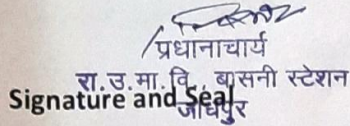 प्रधानाचार्य
रा. उ. मा. वि., बासनी स्टेशन
Signature and Seal
जोधपुर